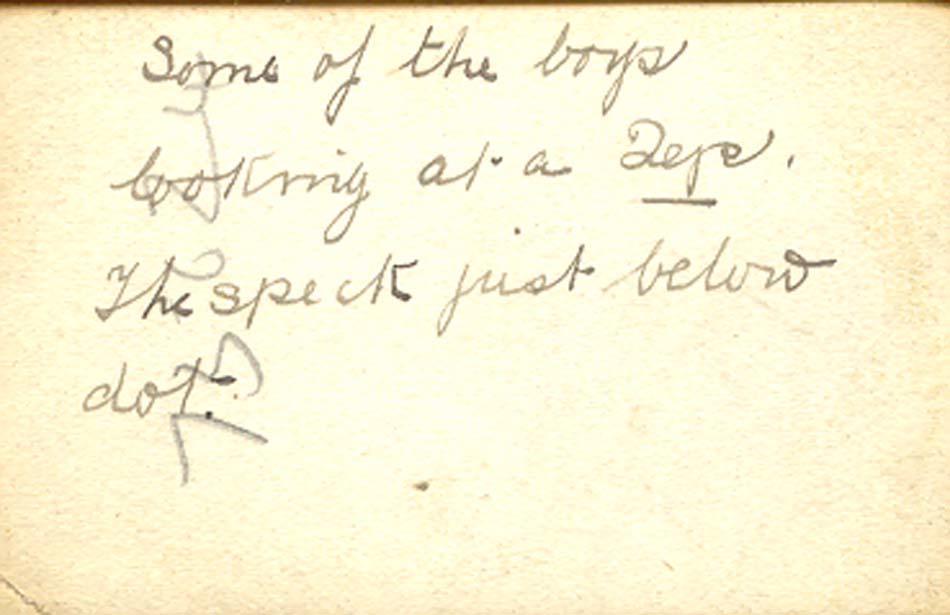 Some of the boys
looking at a
The speck just below
dot.